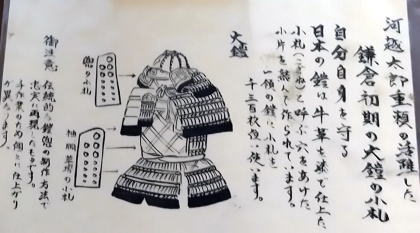 河越太郎重頼の活躍した
鎌倉初期の大鎧の小札
自分自身を守る
日本の鎧は牛革を漆で仕上た
小札(こざね)と呼ぶ穴をあけた
小片を結で作られています。
一領の鎧に小札を
千三百枚位い使います。
大鎧
兜の小札
袖胴草摺の小札
御注意
伝統的な鎧兜の製作方法で
忠実に再現したものです。
手作業のため個々に仕上がり
が異なります。